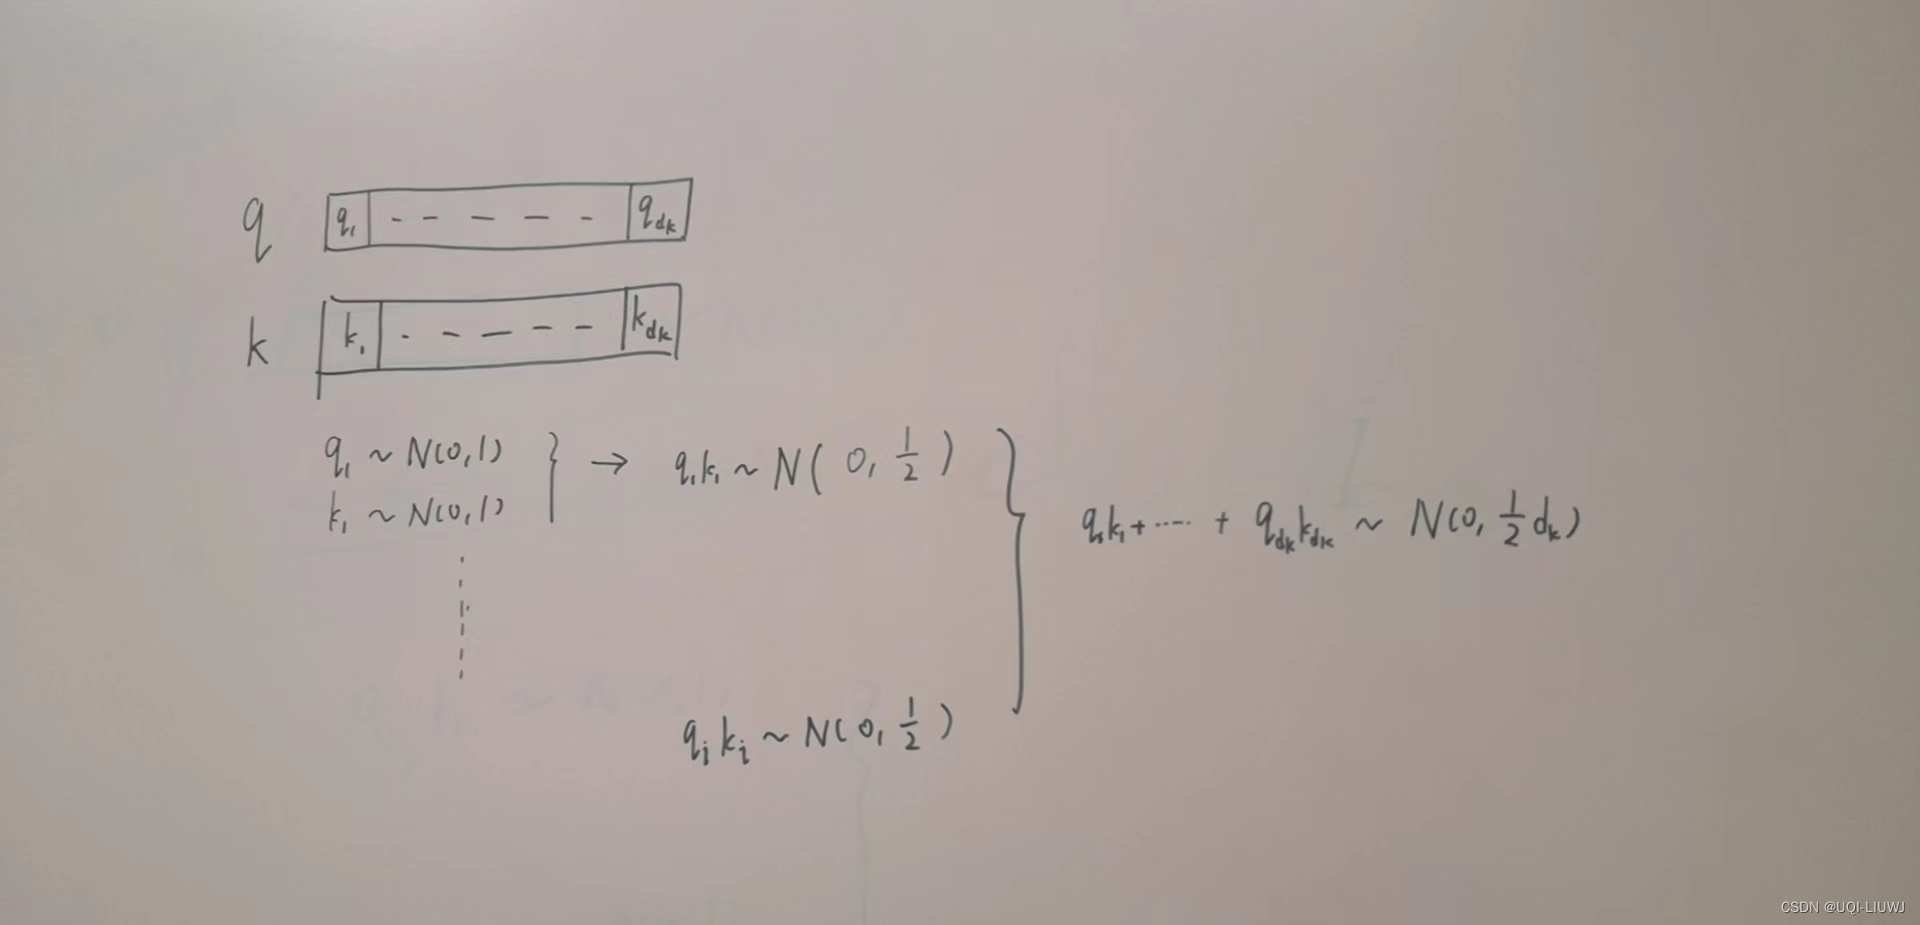 q q₁ - - - - - q_dk
k k₁ - - - - - k_dk
q₁ ~ N(0,1) } → q₁k₁ ~ N(0, 1/2) }
k₁ ~ N(0,1)
q₁k₁+ ····· + q_dk k_dk ~ N(0, 1/2 dk)
qi ki ~ N(0, 1/2)
CSDN @UQI-LIUWJ